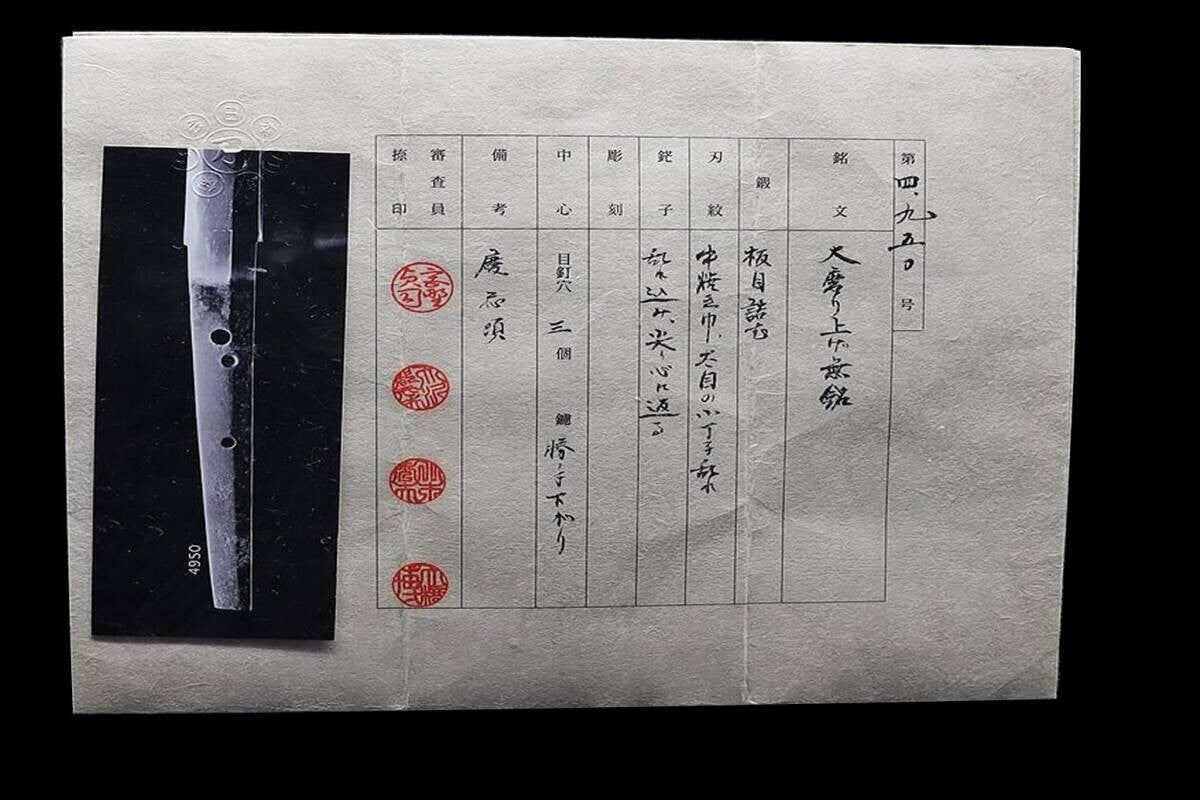 第四、九五〇号
銘文
大磨り上げ無銘
鍛
板目詰む
刃紋
中焼き巾、互目の小丁子乱れ
鋩子
乱れ込み、尖り心に返る
彫刻
中心
目釘穴 三 個 鑢 勝手下がり
備考
慶応頃
審査員
捺印
4950